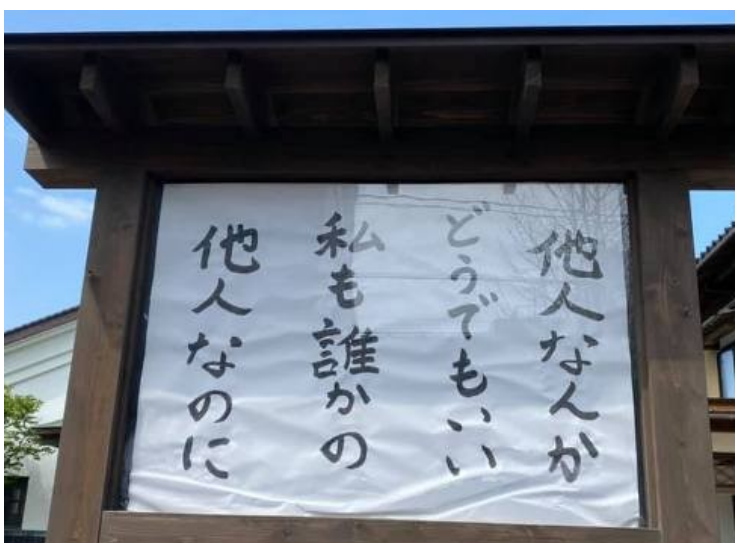 他人なんか
どうでもいい
私も誰かの
他人なのに